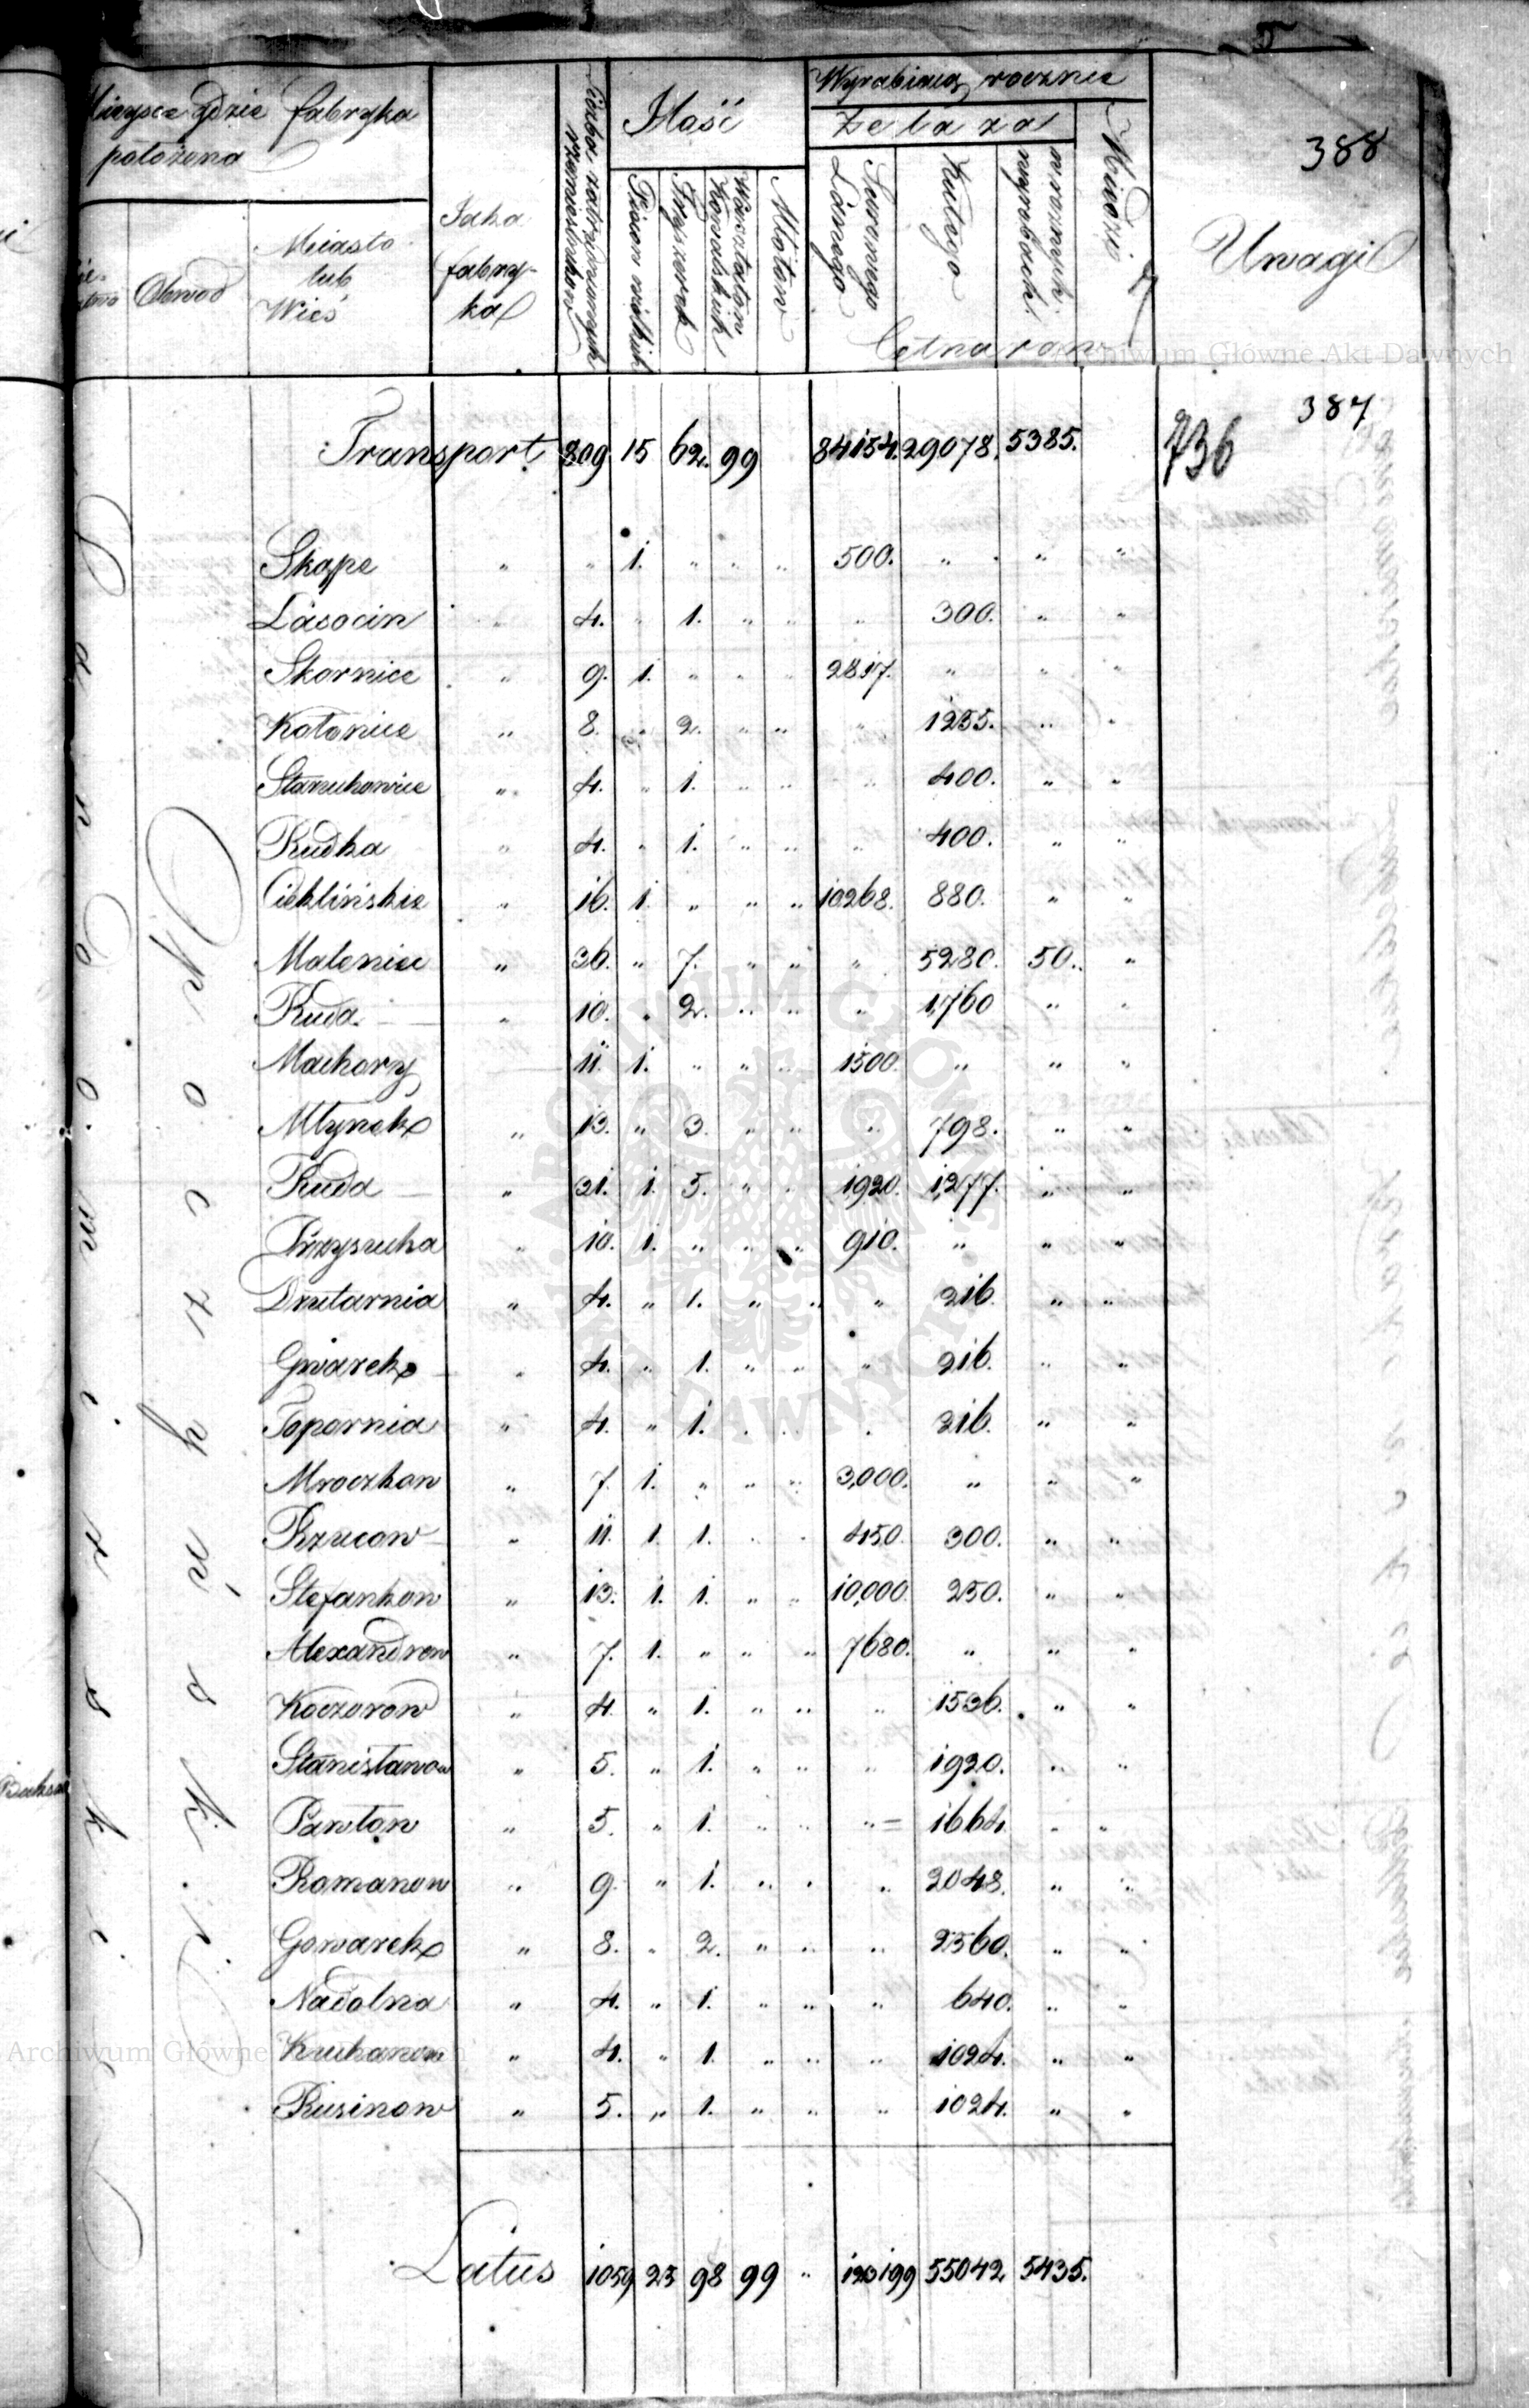 388
Mieysce gdzie fabryka
położona
Obwod
Miasto
lub
Wieś
Jaka
fabry-
ka
Liczba zatrudnionych
rzemieslnikow
Ilość
Piecow wielkich
Fryszerek
Warsztatow
Kowalskich
Młotow
Wyrabiaią rocznie
Żelaza
Surowego
Lanego
Kutego
w roznych
wyrobach
Miedzi
Cetnarow
Uwagi
Archiwum Główne Akt Dawnych
387
736
Transport 809 15 62. 99 84154. 29078. 5385.
Skąpe " " 1. " " " 500. " " "
Łasocin " 4. " 1. " " " 300. " "
Skornice " 9. 1. " " " 2817. " " "
Kotonice " 8. " 2. " " " 1255. " "
Staruchowice " 4. " 1. " " " 400. " "
Rudka " 4. " 1. " " " 400. " "
Cieklińskie " 16. 1. " " " 10268. 880. " "
Maleniec " 36. " 7. " " " 5280. 50. "
Ruda " 10. " 2. " " " 1,760 " "
Machory 11. 1. " " " 1500. " " "
Młynek " 13. " 3. " " " 798. " "
Ruda " 21. 1. 5. " " 1,920. 1,277. " "
Przysucha " 10. 1. " " " 910. " " "
Drutarnia " 4. " 1. " " " 216. " "
Gwarek " 4. " 1. " " " 216. " "
Topornia " 4. " 1. " " " 216. " "
Mroczkow " 7. 1. " " " 3,000. " " "
Rzucow " 11. 1. 1. " " 450. 300. " "
Stefankow " 13. 1. 1. " " 10,000. 250. " "
Alexandrow " 7. 1. " " " 7680. " " "
Koczorow " 4. " 1. " " " 1536. " "
Stanisławow " 5. " 1. " " " 1920. " "
Pawłow " 5. " 1. " " " = 1664. " "
Romanow " 9. " 1. " " " 2048. " "
Gowarek " 8. " 2. " " " 2560. " "
Nadolna " 4. " 1. " " " 640. " "
Kruhanow " 4. " 1. " " " 1024. " "
Rusinow " 5. " 1. " " " 1024. " "
Latus 1059 23 98 99 " 123199 55042. 5435.
Archiwum Główne